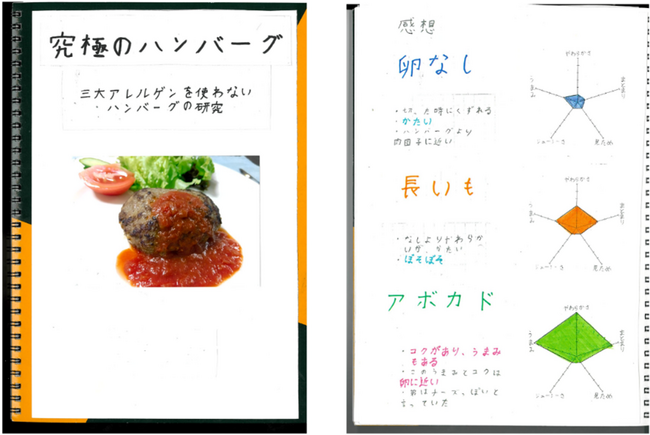 究極のハンバーグ
三大アレルゲンを使わない
ハンバーグの研究
感想
卵なし
・かたい
・ハンバーグより
肉団子に近い
やわらかさ
まとまり
見ため
ジューシーさ
うまみ
長いも
・なしよりやわらか
いが、かたい
・ぼそぼそ
やわらかさ
まとまり
見ため
ジューシーさ
うまみ
アボカド
・コクがあり、うまみ
もある
・このうまみとコクは
卵に近い
・弟はチーズっぽいと
言っていた
やわらかさ
まとまり
見ため
ジューシーさ
うまみ